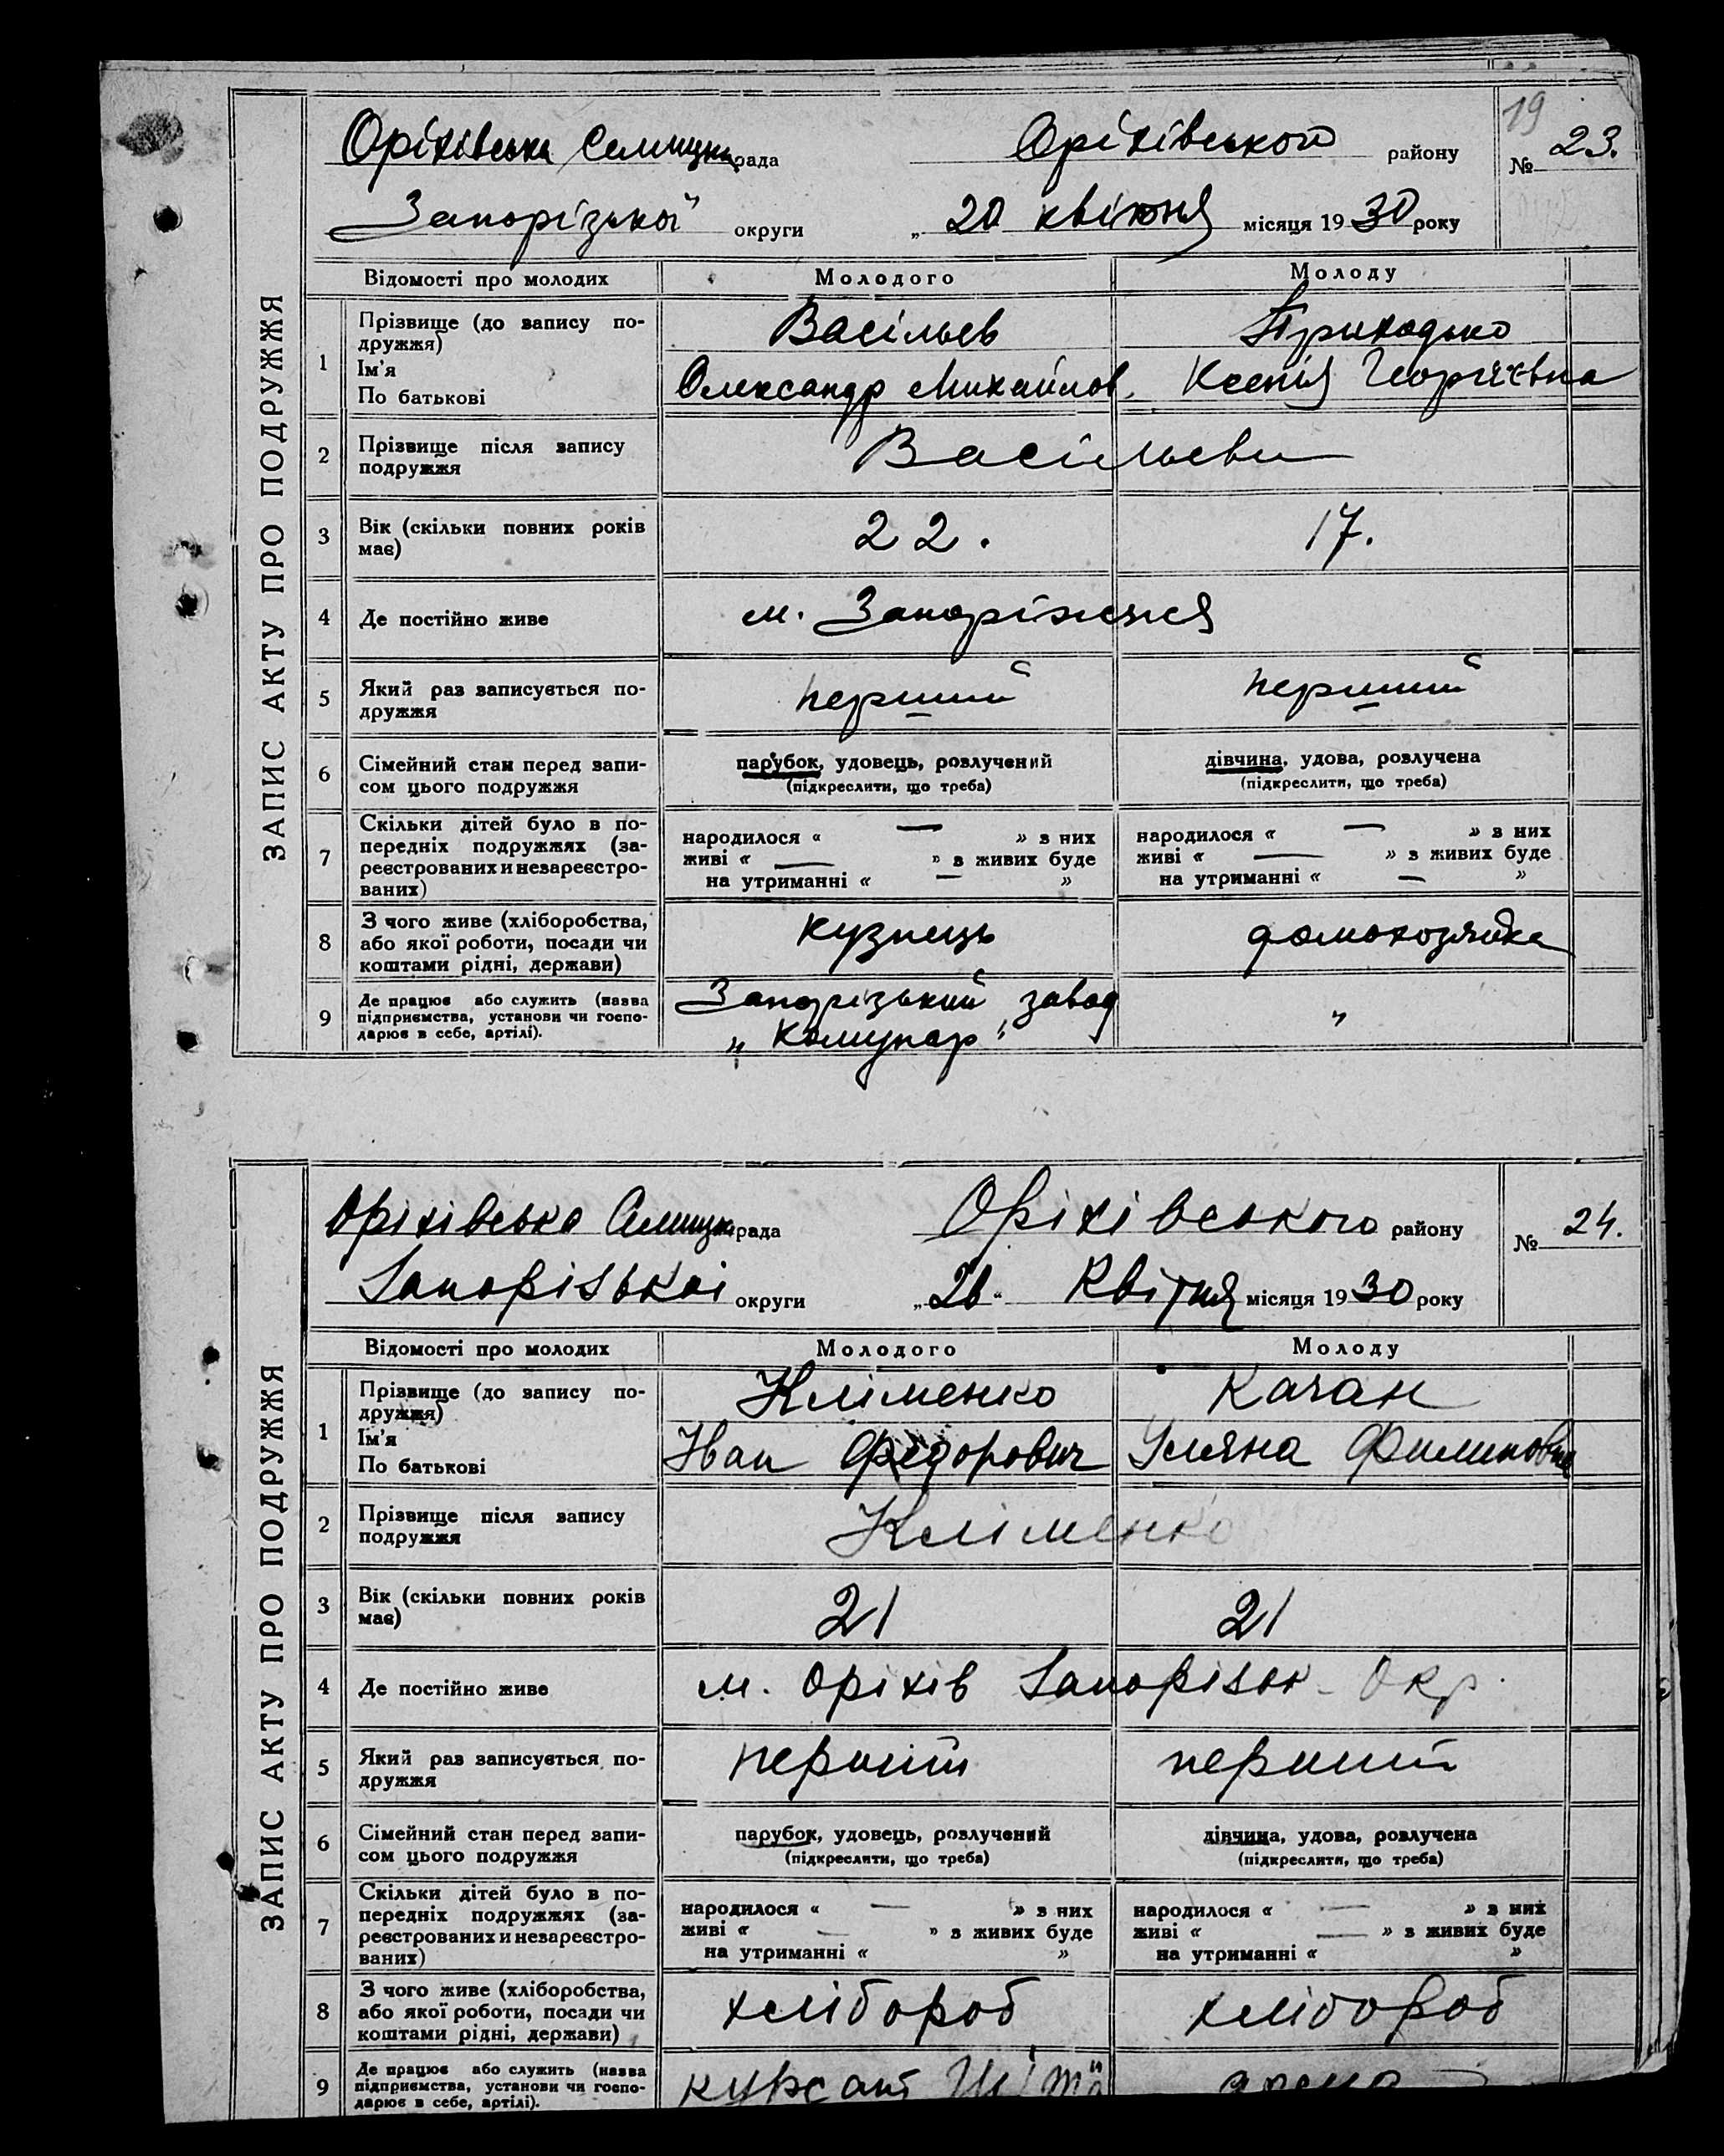 19
Оріхівська Селищна рада Оріхівського району № 23.
Запорізької округи „ 20 квітня місяця 1930 року
ЗАПИС АКТУ ПРО ПОДРУЖЖЯ
Відомості про молодих Молодого Молоду
1 Прізвище (до запису по-
дружжя) Васільев Приходько
Ім'я
По батькові Олександр Михайлов. Ксенія Георгієвна
2 Прізвище після запису
подружжя Васільеви
3 Вік (скільки повних років
має) 22. 17.
4 Де постійно живе м. Запоріжжя
5 Який раз записується по-
дружжя перший перший
6 Сімейний стан перед запи-
сом цього подружжя
парубок, удовець, розлучений дівчина, удова, розлучена
(підкреслити, що треба) (підкреслити, що треба)
7 Скільки дітей було в по-
передніх подружжях (за-
реєстрованих и незареєстро-
ваних)
народилося « — » з них народилося « — » з них
живі « — » з живих буде живі « — » з живих буде
на утриманні « — » на утриманні « — »
8 З чого живе (хліборобства,
або якої роботи, посади чи
коштами рідні, держави) кузнець домохозяйка
9 Де працює або служить (назва
підприємства, установи чи госпо-
дарює в себе, артілі).
Запорізький завод „
„Комунар"
Оріхівська Селищна рада Оріхівського району № 24.
Запорізькоі округи „26" Квітня місяця 1930 року
ЗАПИС АКТУ ПРО ПОДРУЖЖЯ
Відомості про молодих Молодого Молоду
1 Прізвище (до запису по-
дружжя) Кліменко Качан
Ім'я
По батькові Іван Федорович Уляна Филиповна
2 Прізвище після запису
подружжя Кліменко
3 Вік (скільки повних років
має) 21 21
4 Де постійно живе м. Оріхів Запорізьк. Окр.
5 Який раз записується по-
дружжя перший перший
6 Сімейний стан перед запи-
сом цього подружжя
парубок, удовець, розлучений дівчина, удова, розлучена
(підкреслити, що треба) (підкреслити, що треба)
7 Скільки дітей було в по-
передніх подружжях (за-
реєстрованих и незареєстро-
ваних)
народилося « — » з них народилося « — » з них
живі « — » з живих буде живі « — » з живих буде
на утриманні « » на утриманні « »
8 З чого живе (хліборобства,
або якої роботи, посади чи
коштами рідні, держави) хлібороб хлібороб
9 Де працює або служить (назва
підприємства, установи чи госпо-
дарює в себе, артілі).
курсант